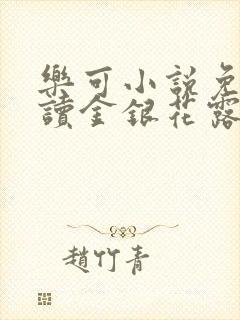 樂可小說免
讀金銀花露
趙竹青